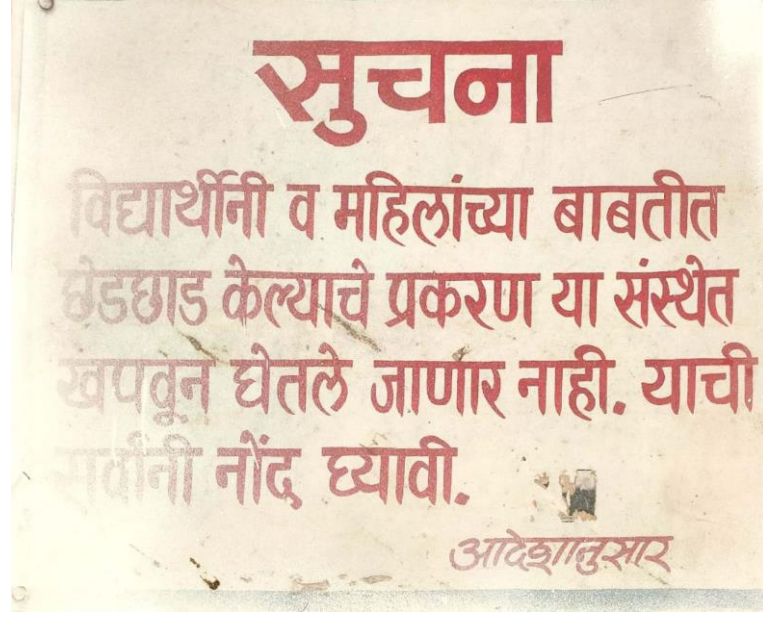 सुचना
विद्यार्थीनी व महिलांच्या बाबतीत
छेडछाड केल्याचे प्रकरण या संस्थेत
खपवून घेतले जाणार नाही. याची
सर्वांनी नोंद घ्यावी.
आदेशानुसार